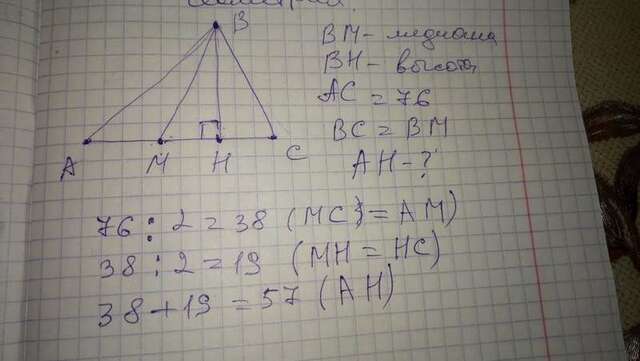 Геометрия.
B
A M H C
BM - медиана
BH - высота
AC = 76
BC = BM
AH - ?
76 : 2 = 38 (MC = AM)
38 : 2 = 19 (MH = HC)
38 + 19 = 57 (AH)